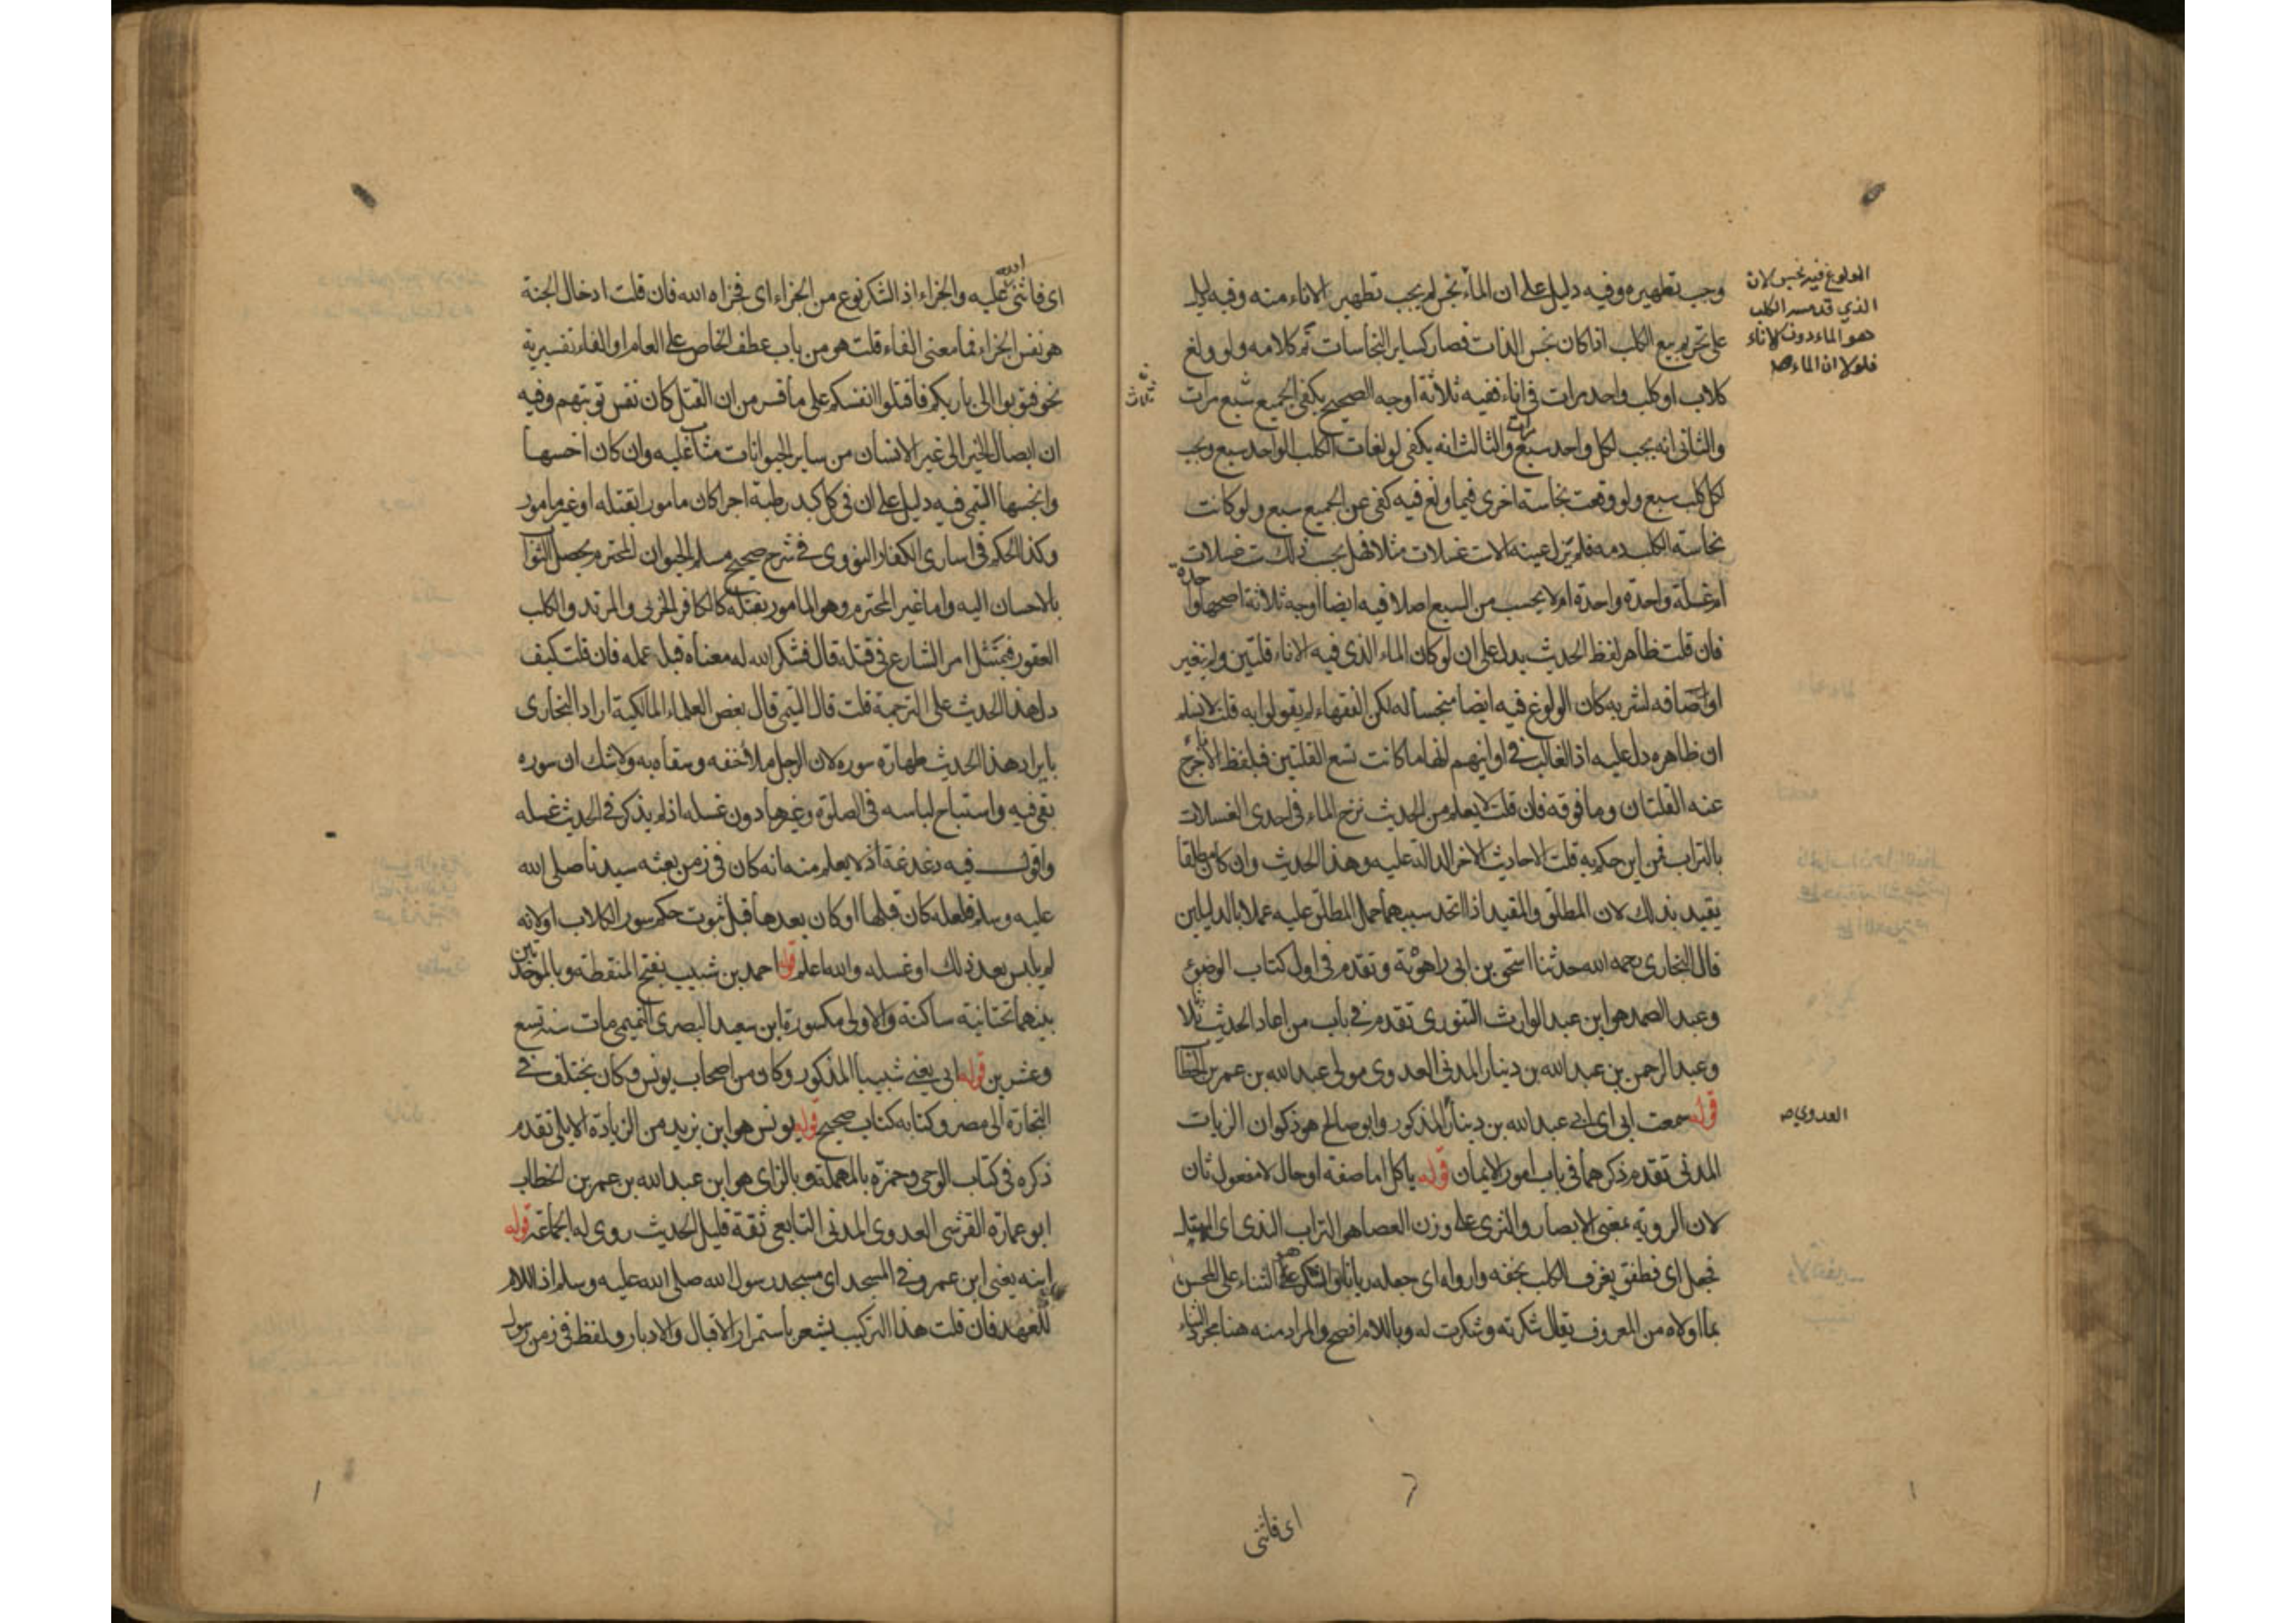 وجب تطهيره وفيه دليل على ان الماء نجس لم يجب تطهير الاناء منه وفيه دليل
على تحريم بيع الكلب اذا كان نجس الذات فصار كساير النجاسات تم كلامه ولو ولغ
كلاب او كلب واحد مرات في اناء ففيه ثلاثة اوجه الصحيح يكفي الجميع سبع مرات
والثاني انه يجب لكل واحد سبع والثالث انه يكفي لولغات الكلب الواحد سبع ويجب
لكل كلب سبع ولو وقعت نجاسة اخرى فيما ولغ فيه كفى عن الجميع سبع ولو كانت
نجاسة الكلب دمه فلم تزل عينه الا ست غسلات مثلا فهل يحسب ذلك ست غسلات
ام غسلة واحدة واحدة ام لا يحسب من السبع اصلا فيه ايضا اوجه ثلاثة اصحها واحدة
فان قلت ظاهر لفظ الحديث يدل على ان لو كان الماء الذي فيه الاناء قلتين ولم تتغير
اوصافه لشربه كان الولوغ فيه ايضا منجسا له لكن الفقهاء لم يقولوا به قلت لا نسلم
ان ظاهره دل عليه اذ الغالب في اوانيهم انها ما كانت تسع القلتين فبلفظ الاناء خرج
عنه القلتان وما فوقه فان قلت لا يعلم من الحديث مزج الماء في احدى الغسلات
بالتراب فمن اين حكم به قلت الاحاديث الاخر الدالة عليه وهذا الحديث وان كان مطلقا
يقيد بذلك لان المطلق والمقيد اذا اتحد سببهما حمل المطلق عليه عملا بالدليلين
قال البخاري رحمه الله حدثنا اسحق بن ابي راهوية وتقدم في اول كتاب الوضوء
وعبد الصمد هو ابن عبد الوارث التنوري تقدم في باب من اعاد الحديث ثلاثا
وعبد الرحمن بن عبد الله بن دينار المدني العدوي مولى عبد الله بن عمر بن الخطاب
قوله سمعت ابي اي ابي عبد الله بن دينار المذكور وابو صالح هو ذكوان الزيات
المدني تقدم ذكرهما في باب امور الايمان قوله ياكل اما صفة او حال لا مفعول ثان
لان الروية بمعنى الابصار والثرى على وزن العصا هو التراب الندي اي المبتل
فجعل اي فطفق يغرف الكلب بخفه وارواه اي جعله ريانا والشكر هو الثناء على المحسن
بما اولاه من المعروف يقال شكرته وشكرت له وباللام افصح والمراد منه هنا مجرد الثناء
الولوغ فيه نجس لان
الذي قد مسه الكلب
هو الماء دون الاناء
فلولا ان الماء
العدوي
ثلاث
اي فاثنى
اي فاثنى الله عليه والجزاء اذ الشكر نوع من الجزاء اي فجزاه الله فان قلت ادخال الجنة
هو نفس الجزاء فما معنى الفاء قلت هو من باب عطف الخاص على العام او الفاء تفسيرية
نحو فتوبوا الى باريكم فاقتلوا انفسكم على ما فسر من ان القتل كان نفس توبتهم وفيه
ان ايصال الخير الى غير الانسان من ساير الحيوانات مثاب عليه وان كان اخسها
وانجسها التيمي فيه دليل على ان في كل كبد رطبة اجرا كان مامورا بقتله او غير مامور
وكذا الحكم في اسارى الكفار النووي في شرح صحيح مسلم الحيوان المحترم يحصل الثواب
بالاحسان اليه واما غير المحترم وهو المامور بقتله كالكافر الحربي والمرتد والكلب
العقور فيمتثل امر الشارع في قتله قال فشكر الله له معناه قبل عمله فان قلت كيف
دل هذا الحديث على الترجمة قلت قال التيمي قال بعض العلماء المالكية اراد البخاري
بايراد هذا الحديث طهارة سوره لان الرجل ملا خفه وسقاه به ولا شك ان سوره
بقي فيه واستباح لباسه في الصلوة وغيرها دون غسله اذ لم يذكر في الحديث غسله
واقول فيه دغدغة اذ لا يعلم منه انه كان في زمن بعثه سيدنا صلى الله
عليه وسلم فلعله كان قبلها او كان بعدها قبل ثبوت حكم سور الكلاب او لانه
لم يلبس بعد ذلك او غسله والله اعلم قوله احمد بن شبيب بفتح المنقطة وبالموحدتين
بينهما تحتانية ساكنة والاولى مكسورة ابن سعيد البصري التميمي مات سنة تسع
وعشرين قوله ابي يعني شبيبا المذكور وكان من اصحاب يونس وكان يختلف في
التجارة الى مصر وكتابه كتاب صحيح قوله يونس هو ابن يزيد من الزيادة الايلي تقدم
ذكره في كتاب الوحي وحمزة بالمهملة وبالزاي هو ابن عبد الله بن عمر بن الخطاب
ابو عمارة القرشي العدوي المدني التابعي ثقة قليل الحديث روى له الجماعة قوله
ابنه يعني ابن عمر وفي المسجد اي مسجد رسول الله صلى الله عليه وسلم اذ اللام
للعهد فان قلت هذا التركيب يشعر باستمرار الاقبال والادبار ولفظ في زمن رسول